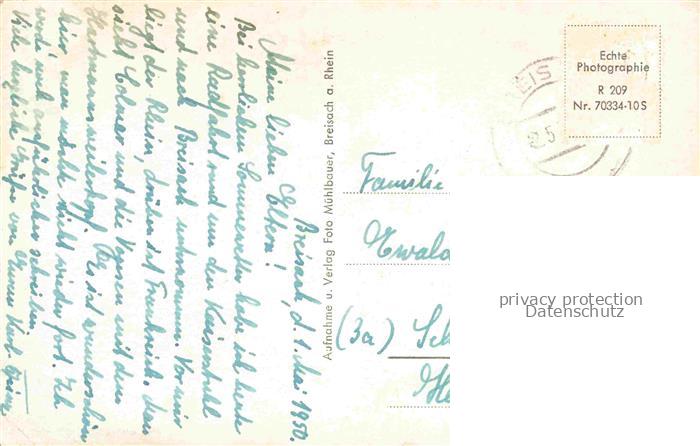 Breisach, d. 1. Mai 1950.
Meine lieben Eltern!
Bei herrlichem Sommerwetter habe ich heute
eine Radfahrt rund um den Kaiserstuhl
und nach Breisach unternommen. Vor mir
liegt der Rhein, drüben ist Frankreich. Man
sieht Colmar und die Vogesen mit dem
Hartmannsweilerkopf. Es ist wunderschön
hier, man möchte nicht wieder fort. Ich
werde noch ausführlicher schreiben.
Viele herzliche Grüße von Eurem
Aufnahme u. Verlag Foto Mühlbauer, Breisach a. Rhein
Echte
Photographie
R 209
Nr. 70334-10S
EIS
5
Familie
Ewald
(3a) Sch
privacy protection
Datenschutz